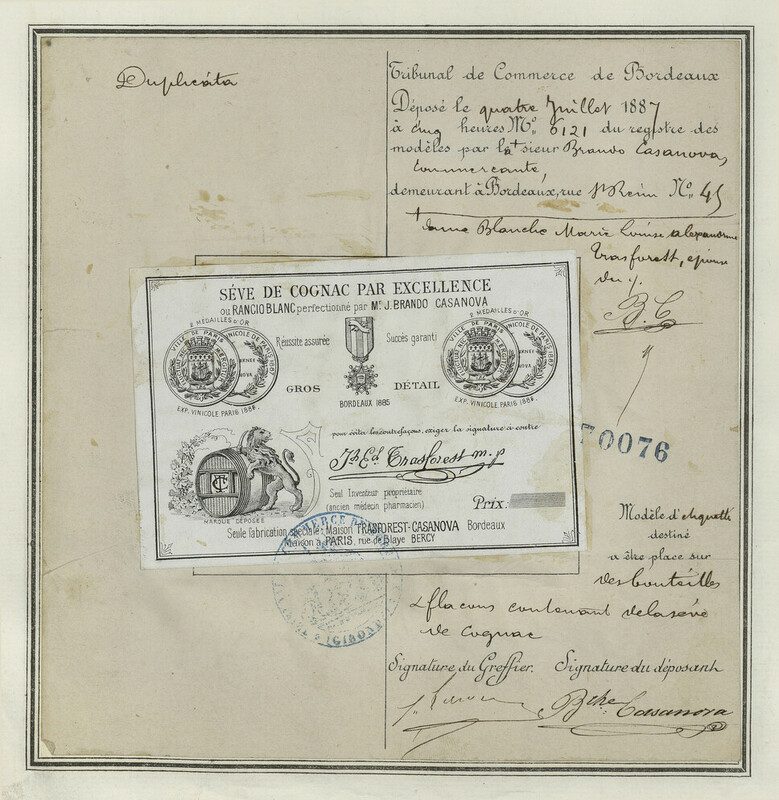 Duplicata
Tribunal de Commerce de Bordeaux
Déposé le quatre Juillet 1887
à cinq heures No. 6121 du registre des
modèles par le sieur Brando Casanova,
Commerçante,
demeurant à Bordeaux, rue St Remi No. 45
dame Blanche Marie Louise alexandrine
Trasforest, épouse
du s.
B. C
SÉVE DE COGNAC PAR EXCELLENCE
OU RANCIO BLANC perfectionné par Mr. J. BRANDO CASANOVA
2 MÉDAILLES D'OR
VILLE DE PARIS
VINICOLE DE PARIS 1887
EXP. VINICOLE PARIS 1886
Réussite assurée
Succès garanti
GROS
DÉTAIL
BORDEAUX 1885
2 MÉDAILLES D'OR
VILLE DE PARIS
VINICOLE DE PARIS 1887
EXP. VINICOLE PARIS 1886
pour éviter les contrefaçons, exiger la signature ci contre
Jh Ed. Trasforest m. p
TC
MARQUE DÉPOSÉE
Seul Inventeur propriétaire
(ancien médecin pharmacien)
Prix.
Seule fabrication spéciale: Maison TRASFOREST-CASANOVA Bordeaux
Maison à PARIS, rue de Blaye BERCY
0076
Modèle d'étiquette
destiné
a être place sur
des bouteilles
& flacons contenant de la séve
de Cognac
COMMERCE
GIRONDE
Signature du Greffier. Signature du déposant
Bche Casanova